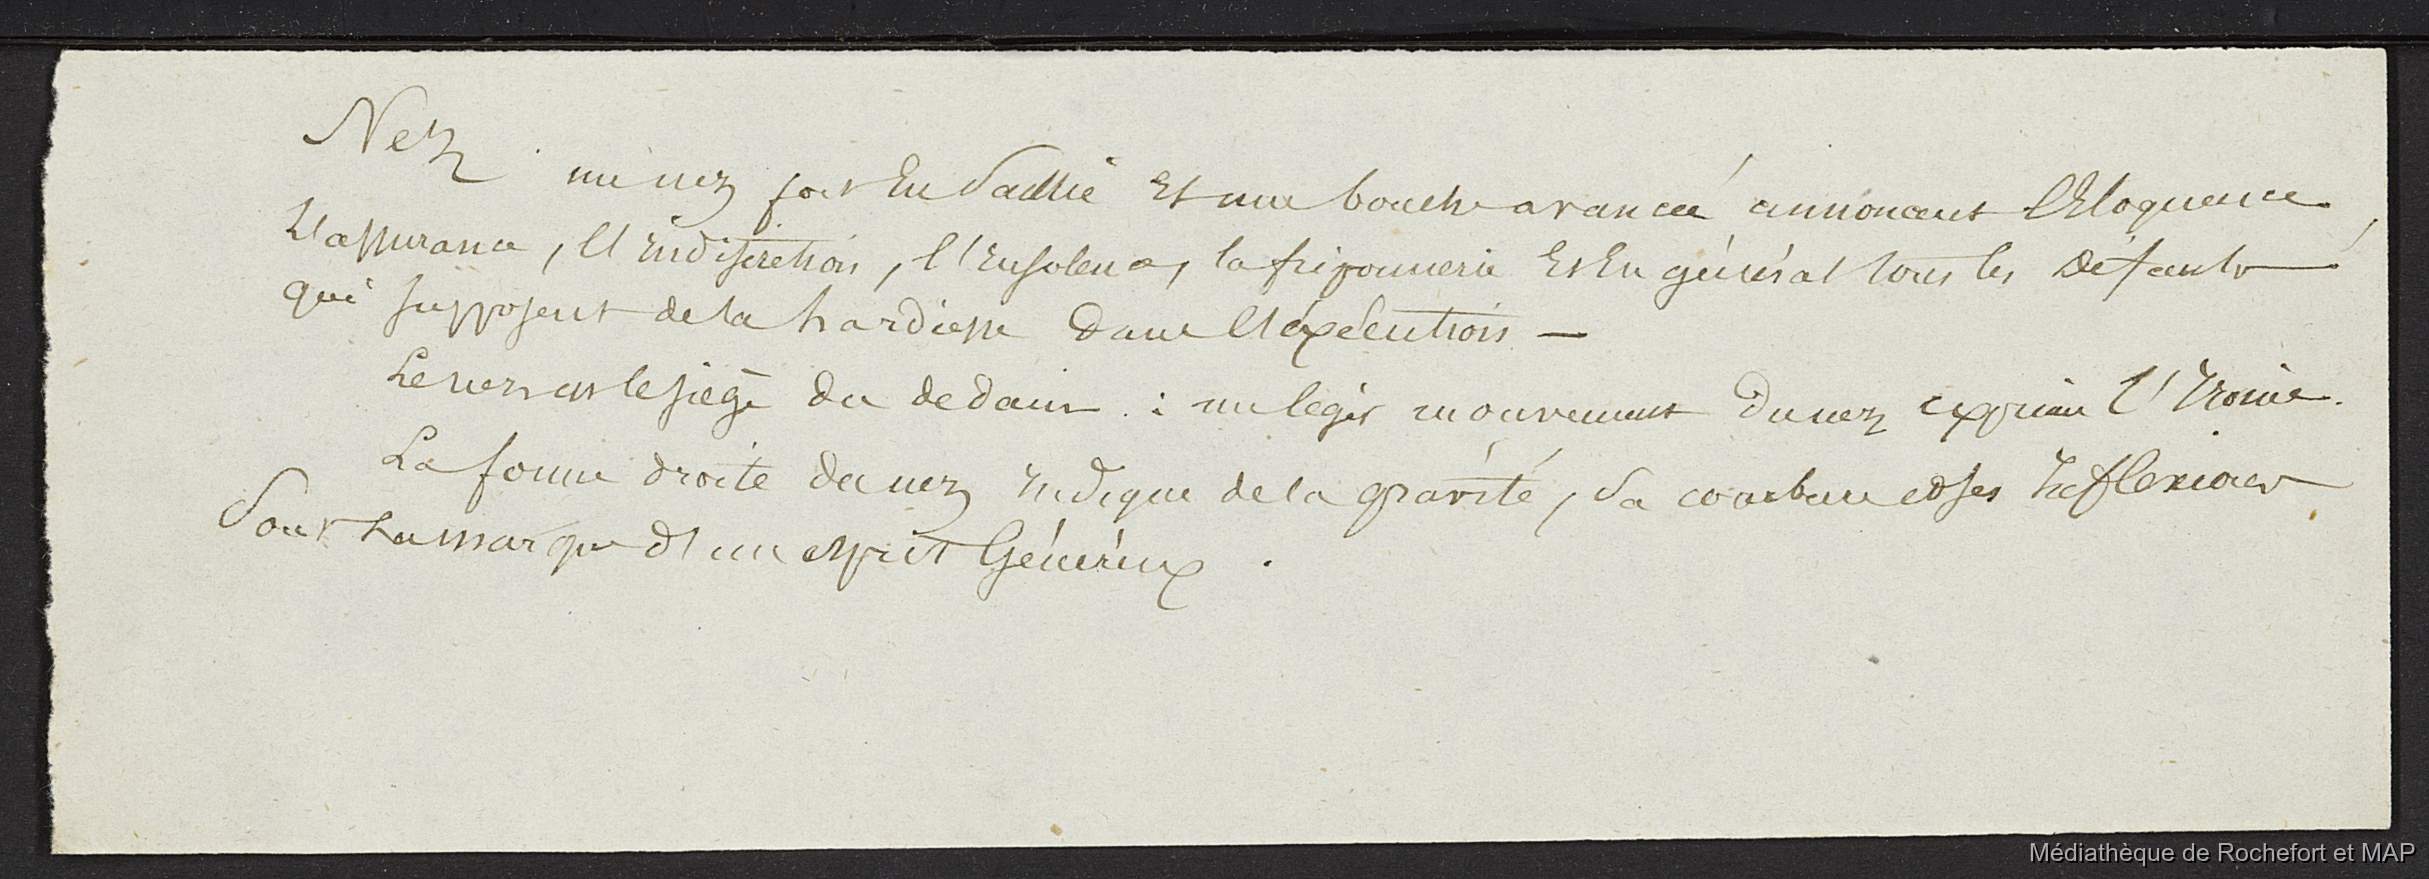 Nez
un nez fort En Saillie Et une bouche avancée annoncent l'Eloquence
L'assurance, l'Indiscrétion, l'Insolence, la friponnerie Et En général tous les Défauts
qui supposent de la hardiesse Dans l'éxécution —
Le nez est le siége du dedain : un leger mouvement du nez exprime l'Ironie.
La forme droite du nez Indique de la gravité, Sa courbure et ses Inflexions
Sont La marque d'un esprit Généreux .
Médiathèque de Rochefort et MAP